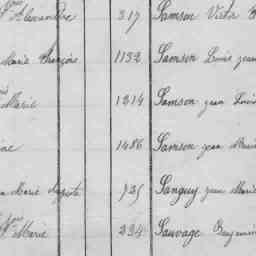 Alexandre 317 Samson Victor
Marie François 1132 Samson Louis jean
Marie 1214 Samson jean Louis
1486 Samson jean Marie
Marie 725 Sanguy jean Marie
Marie 234 Sauvage Benjamin